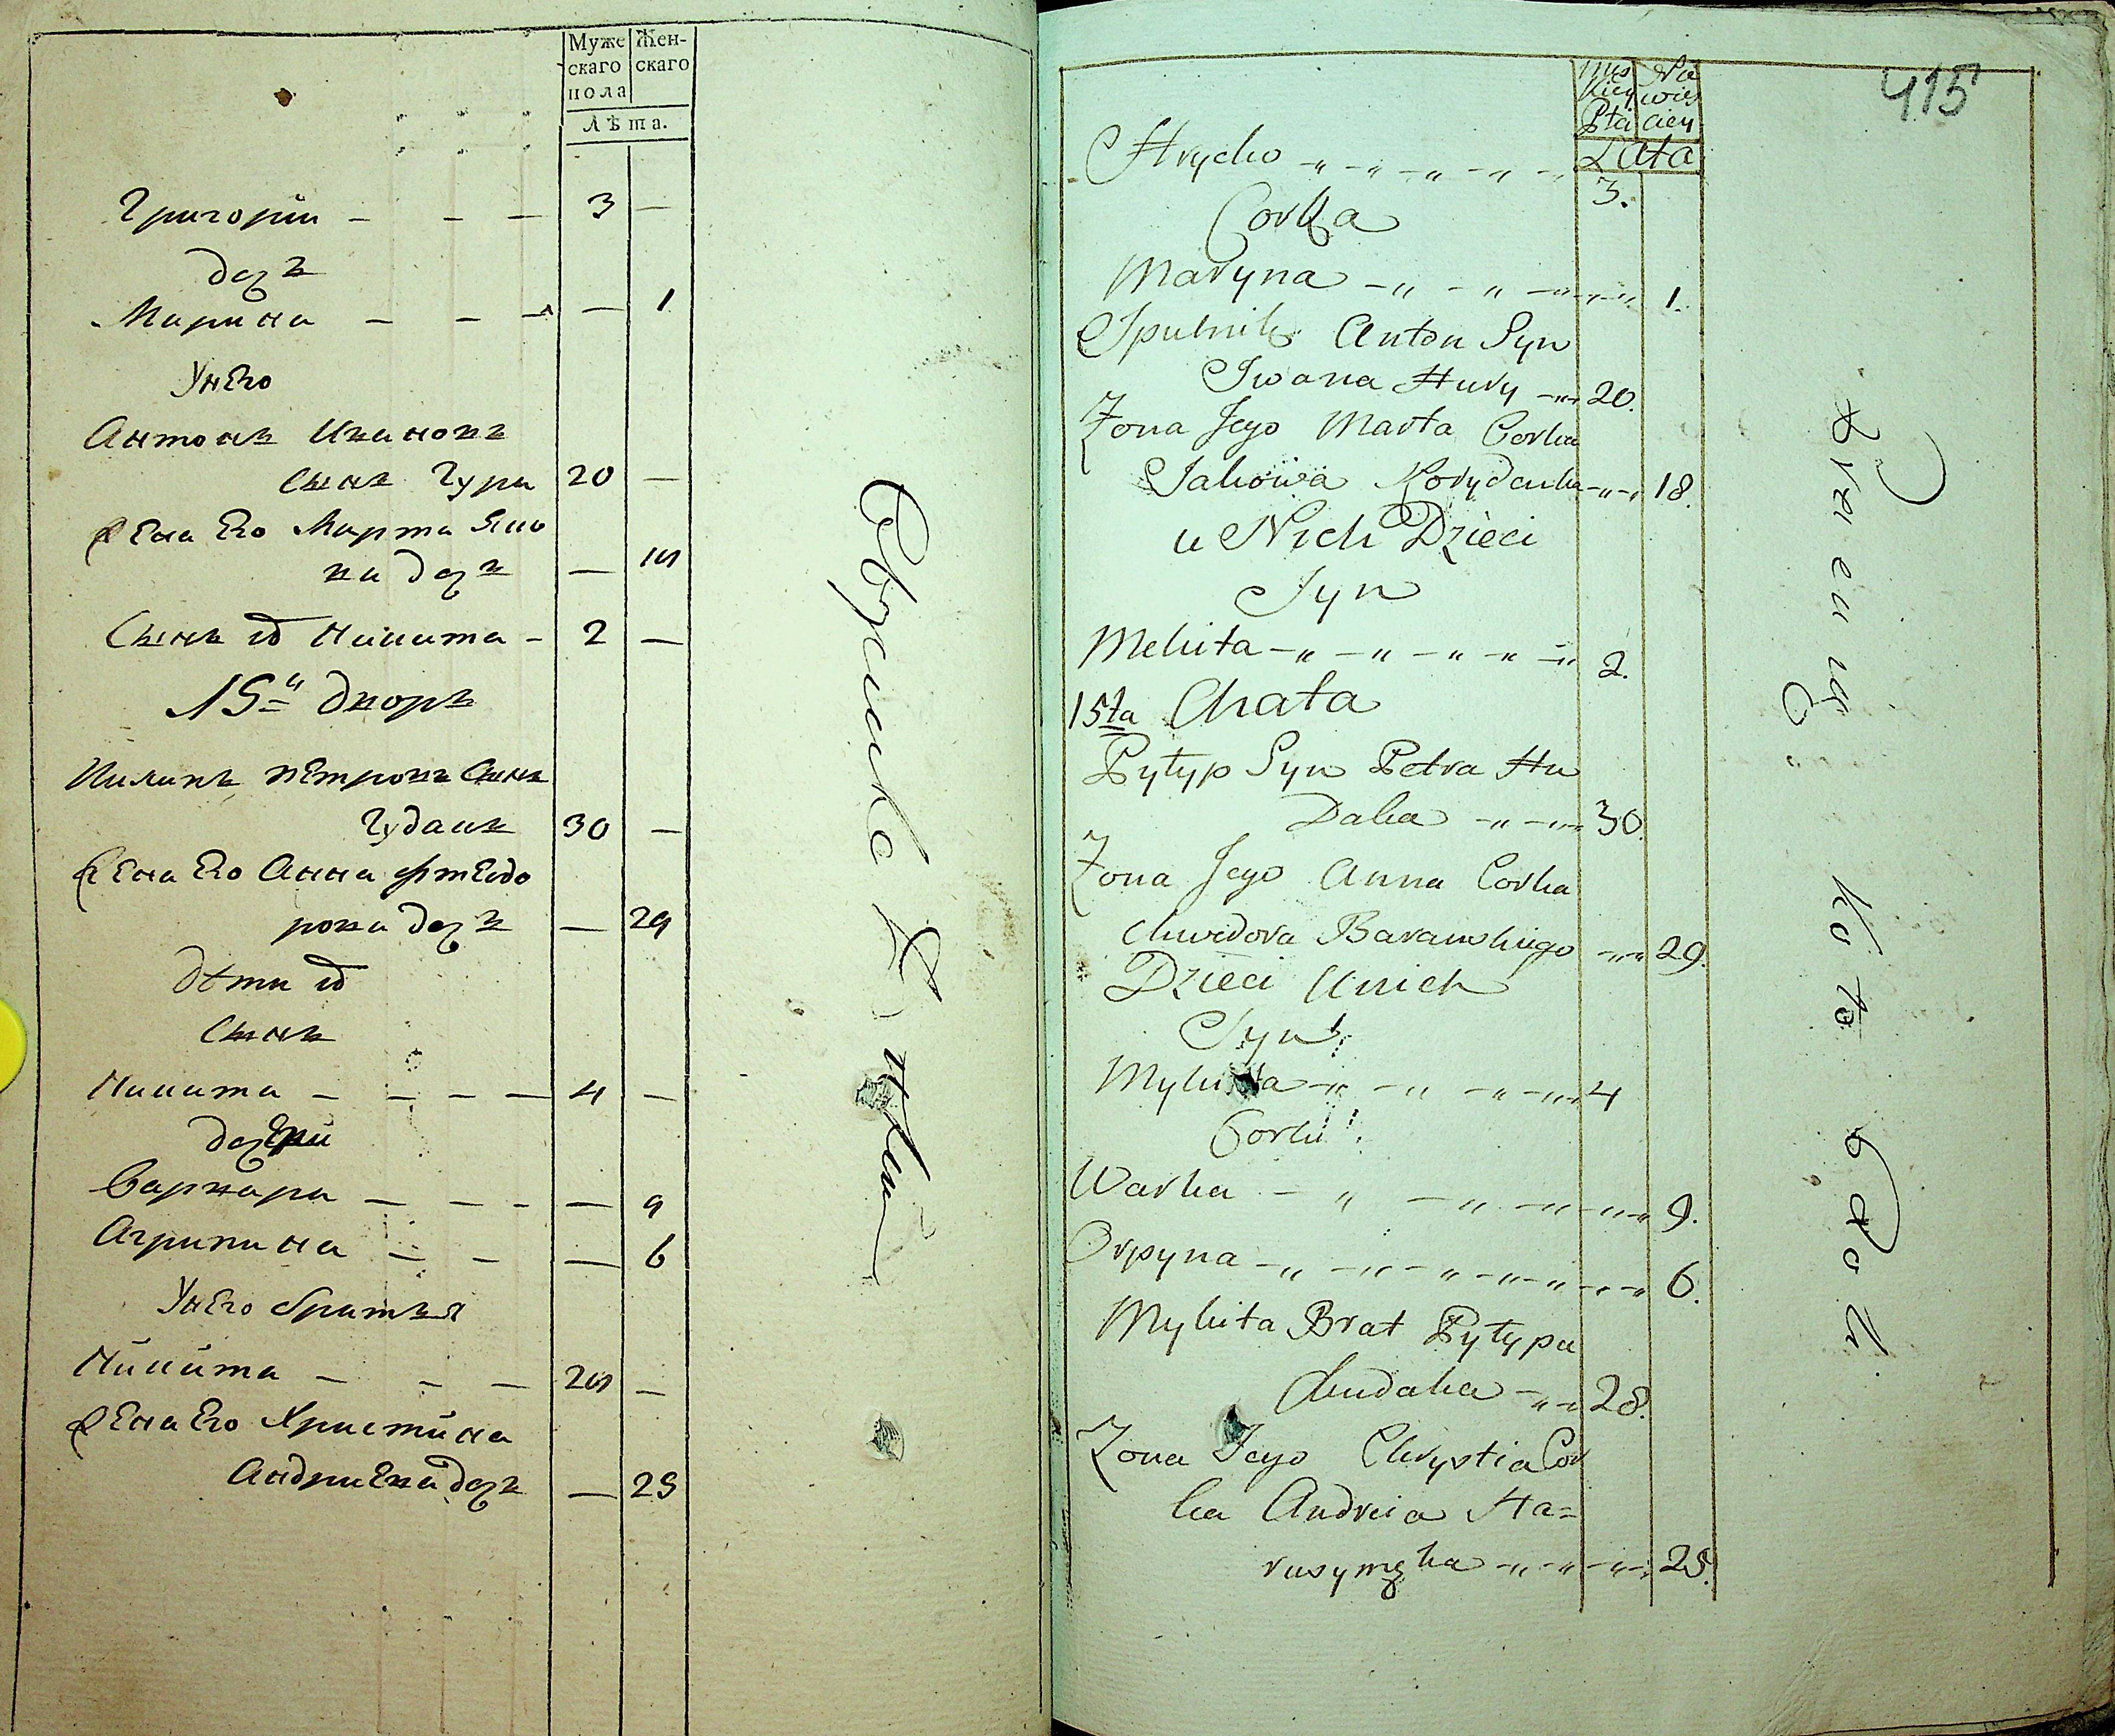 Муже Жен-
скаго скаго
пола
Лѣта.
Григорій — — — 3 —
дочъ
Марина — — — — 1
У него
Антонъ Ивановъ
сынъ Гура 20 —
Жена Его Марта Яко
ва дочъ — 18
Сынъ их Никита — 2 —
15й дворъ
Пилипъ Петровъ Сынъ
Гудакъ 30 —
Жена Его Анна
рова дочъ — 29
дѣти их
Сынъ
Никита — — — — 4 —
дочери
Варвара — — — — 9
Агрипина — — — 6
У него братья
Никита — — — 28 —
Жена Его Христина
Андриева дочъ — 25
415
Mes Nie
kiey wies
Płci ciey
Lata
Hryćko 3.
Corka
Maryna 1.
Sputnik Anton Syn
Iwana Hury 20.
Zona Jego Marta Corka
Jakowa 18.
u Nich Dzieci
Syn
Mekita 2.
15ta Chata
Pytyp Syn Petra Hu
Daka 30.
Zona Jego Anna Corka
Chwedora Baranskiego 29.
Dzieci Unich
Syn
Mykita 4
Corki
Warka 9.
Orpyna 6.
Mykita Brat Pytypa
Hudaka 28.
Zona Jego Chrystia Cor
ka Andreia Ha=
25.